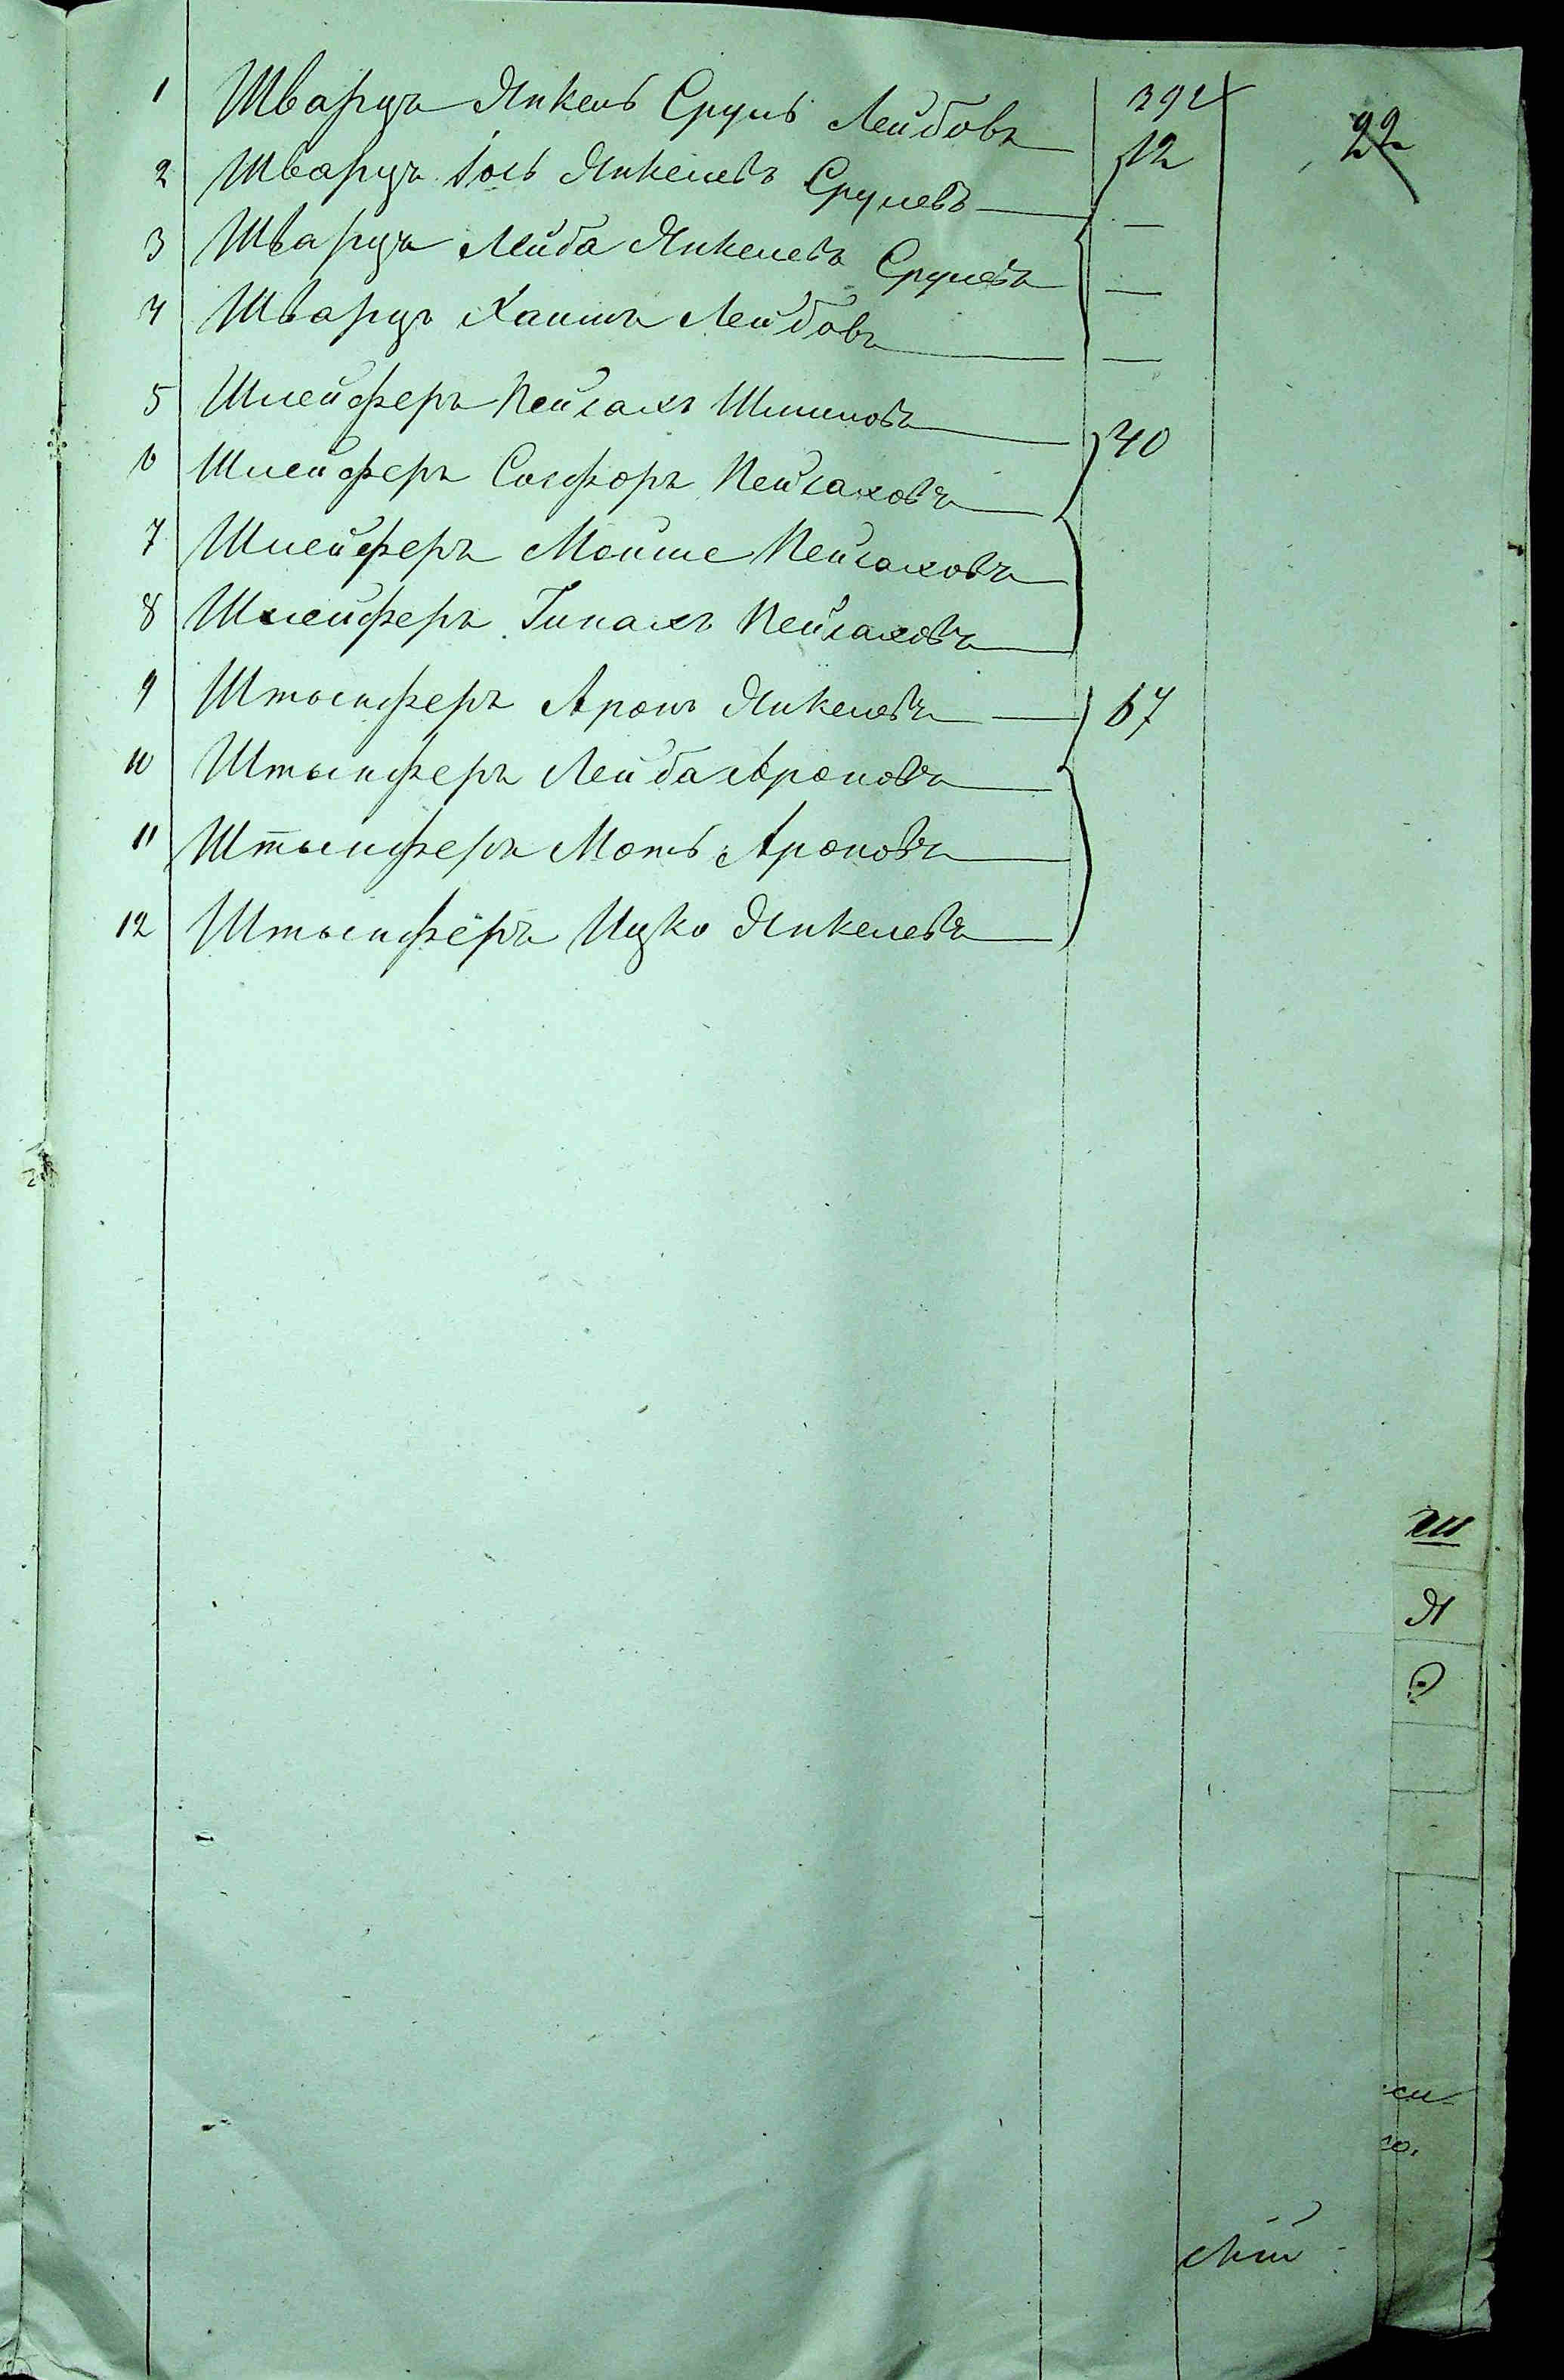 1 Шварцъ Янкель Сруль Лейбовъ 392
12 22
2 Шварцъ Іось Янкелевъ Срулевъ —
3 Шварцъ Лейба Янкелевъ Срулевъ —
4 Шварцъ Хаимъ Лейбовъ —
5 Шлейферъ Пейсахъ Шлиомовъ 40
6 Шлейферъ Сосфоръ Пейсаховъ
7 Шлейферъ Мойше Пейсаховъ
8 Шлейферъ Гинахъ Пейсаховъ
9 Штынферъ Аронъ Янкелевъ — 67
10 Штынферъ Лейба Ароновъ
11 Штынферъ Моть Ароновъ
12 Штынферъ Ицко Янкелевъ
Ш
Я
Ѳ
скій